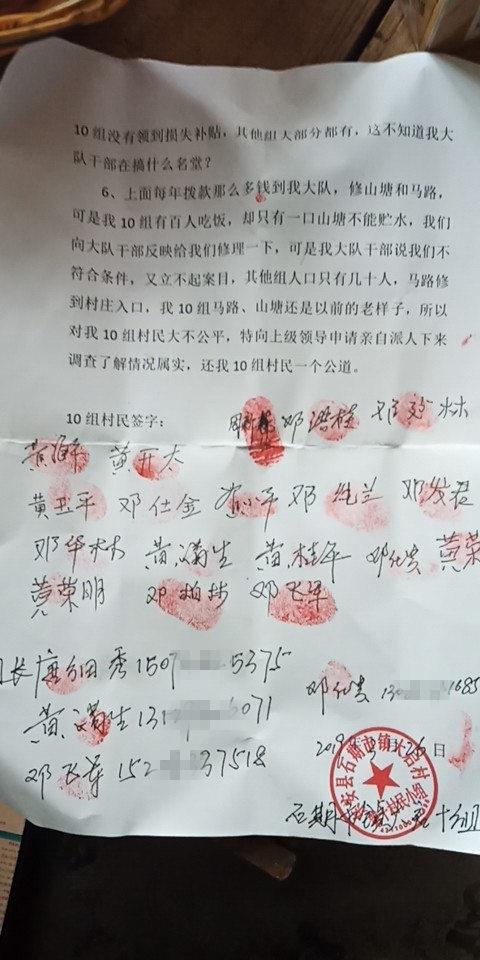 10 组没有领到损失补贴，其他组大部分都有，这不知道我大
队干部在搞什么名堂？
6、上面每年拨款那么多钱到我大队，修山塘和马路，
可是我 10 组有百人吃饭，却只有一口山塘不能贮水，我们
向大队干部反映给我们修理一下，可是我大队干部说我们不
符合条件，又立不起案目，其他组人口只有几十人，马路修
到村庄入口，我 10 组马路、山塘还是以前的老样子，所以
对我 10 组村民大不公平，特向上级领导申请亲自派人下来
调查了解情况属实，还我 10 组村民一个公道。
10 组村民签字：
邓 桂 林
黄 黄开太
黄卫平 邓仕金 平 邓纯兰 邓发君
邓华林 黄满生 黄桂年 邓 贵 黄荣
黄荣明 邓柏 邓飞军
长唐细秀 150 5375
邓 贵 13 1685
黄满生 13 6071
邓飞军 152 37518
2019 月26日
安县石期市镇 村 村民小组
石期市镇 十组